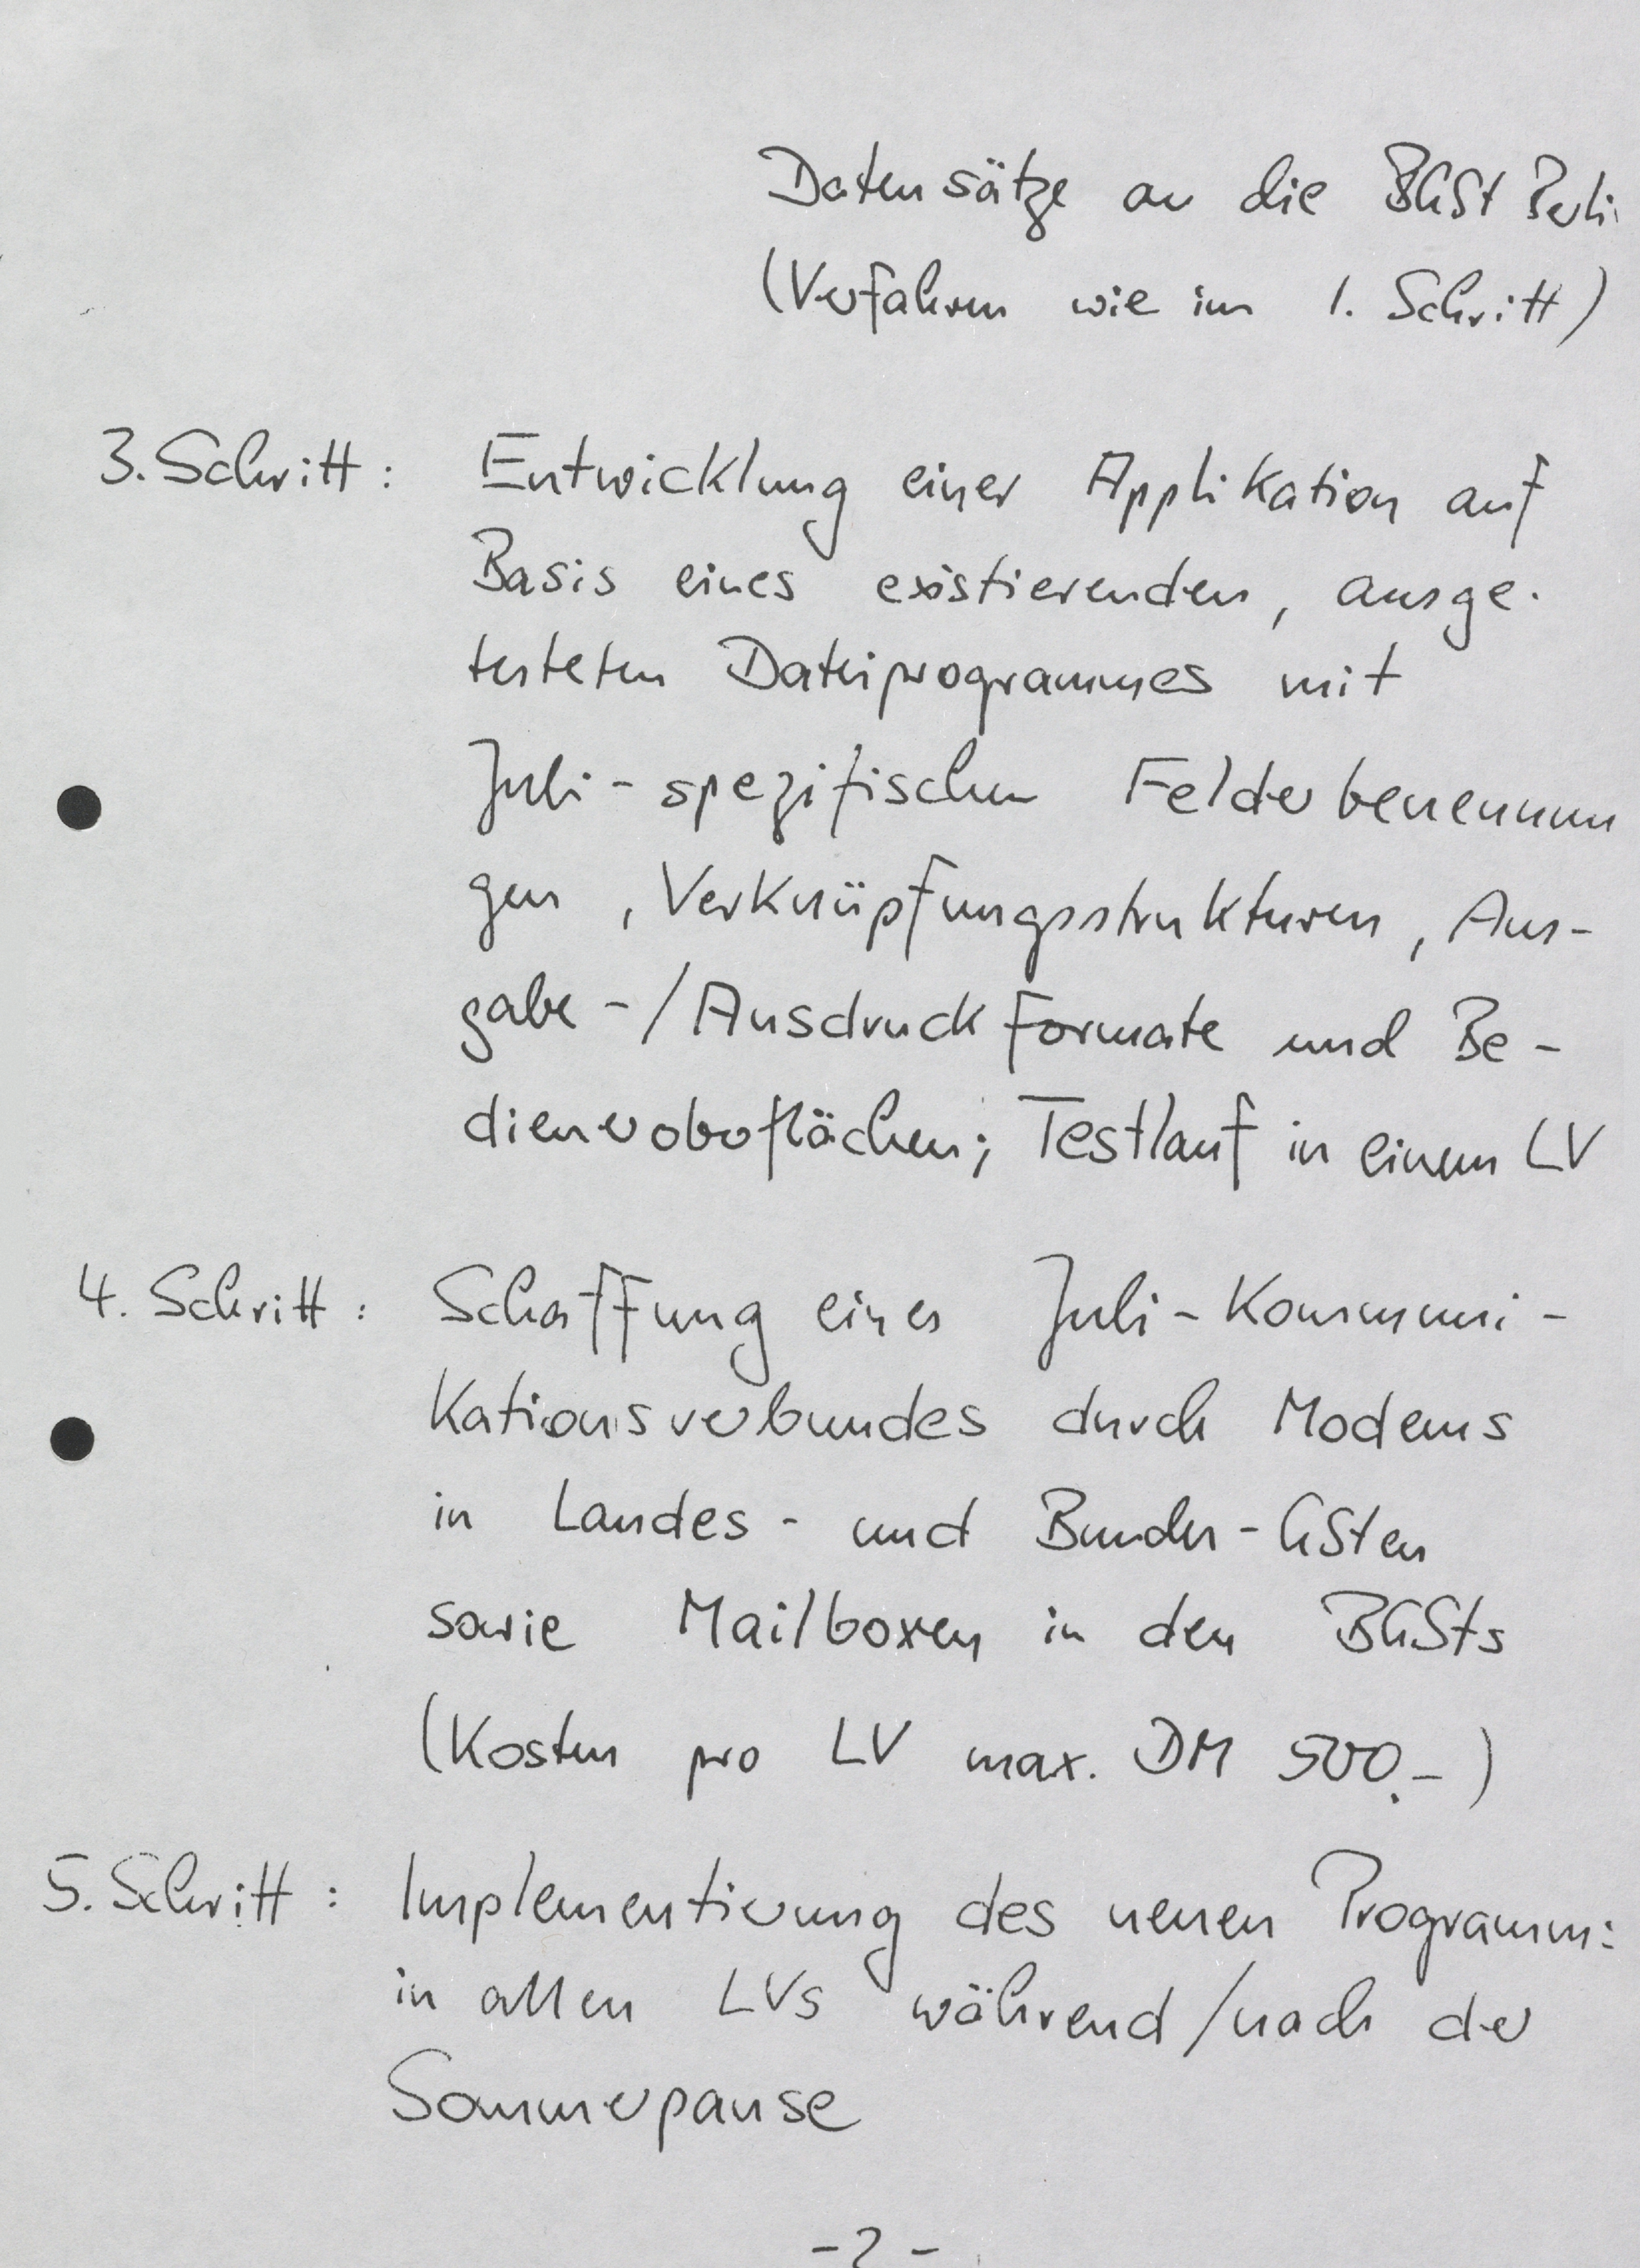 Datensätze an die BGSt Berli
(Verfahren wie im 1. Schritt)
3. Schritt: Entwicklung einer Applikation auf
Basis eines existierenden, ausge-
testeten Dateiprogrammes mit
Juli-spezifischen Felderbenennun
gen, Verknüpfungsstrukturen, Aus-
gabe-/Ausdruckformate und Be-
dieneroberflächen; Testlauf in einem LV
4. Schritt: Schaffung eines Juli-Kommuni-
kationsverbundes durch Modems
in Landes- und Bundes-GSten
sowie Mailboxen in den BGSts
(Kosten pro LV max. DM 500,-)
5. Schritt: Implementierung des neuen Programm
in allen LVs während/nach der
Sommerpause
-2-